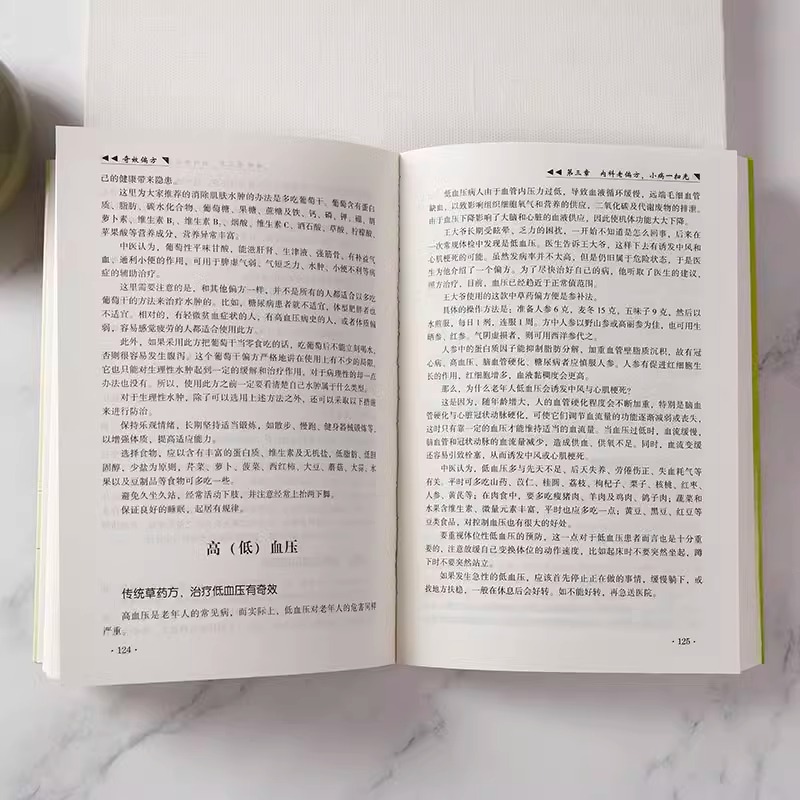 ◀◀ 奇效偏方
己的健康带来隐患。
这里为大家推荐的消除肌肤水肿的办法是多吃葡萄干。葡萄含有蛋白
质、脂肪、碳水化合物、葡萄糖、果糖、蔗糖及铁、钙、磷、钾、硼、胡
萝卜素、维生素B₁、维生素B₂、烟酸、维生素C、酒石酸、草酸、柠檬酸、
苹果酸等营养成分，营养异常丰富。
中医认为，葡萄性平味甘酸，能滋肝肾、生津液、强筋骨，有补益气
血、通利小便的作用，可用于脾虚气弱、气短乏力、水肿、小便不利等病症
的辅助治疗。
这里需要注意的是，和其他偏方一样，并不是所有的人都适合以多吃
葡萄干的方法来治疗水肿的。比如，糖尿病患者就不适宜，体型肥胖者也
不适宜。相对的，有轻微贫血症状的人、有高血压病史的人，或者体质偏
弱，容易感觉疲劳的人都适合使用此方。
此外，如果采用此方把葡萄干当零食吃的话，吃葡萄后不能立刻喝水，
否则很容易发生腹泻。这个葡萄干偏方严格地讲在使用上有不少的局限，
它也只能对生理性水肿起到一定的缓解和治疗作用。对于病理性的却一点
办法也没有。所以，使用此方之前一定要看清楚自己水肿属于什么类型。
对于生理性水肿，除了可以选用上述方法之外，还可以采取以下措施
来进行防治。
保持乐观情绪，长期坚持适当锻炼，如散步、慢跑、健身器械锻炼等，
以增强体质，提高适应能力。
选择食物，应以含有丰富的蛋白质、维生素及无机盐，低脂肪、低胆
固醇，少盐为原则，芹菜、萝卜、菠菜、西红柿、大豆、蘑菇、大蒜、水
果以及豆制品等食物可多吃一些。
避免久坐久站，经常活动下肢，并注意经常上抬两下脚。
保证良好的睡眠，起居有规律。
高（低）血压
传统草药方、治疗低血压有奇效
高血压是老年人的常见病，而实际上，低血压对老年人的危害同样
严重。
· 124 ·
◀◀ 第三章 内科老偏方，小病一扫光
低血压病人由于血管内压力过低，导致血液循环缓慢，远端毛细血管
缺血，以致影响组织细胞氧气和营养的供应，二氧化碳及代谢废物的排泄。
由于血压下降影响了大脑和心脏的血液供应，因此使机体功能大大下降。
王大爷长期受眩晕、乏力的困扰，一开始不知是怎么回事，后来在
一次常规体检中发现是低血压。医生告诉王大爷，这样下去有诱发中风与
心肌梗死的可能。虽然发病率并不大高，但是仍旧属于危险状态，于是医
生为他介绍了一个偏方。为了尽快治好自己的病，他听取了医生的建议，
照方治疗，目前，血压已经趋近于正常值范围。
王大爷使用的这款中草药偏方便是参补法。
具体的操作方法是：准备人参6克，麦冬15克，五味子9克，然后以
水煎服，每日1剂，连服1周。方中人参以野山参或高丽参为佳，也可用生
晒参、红参。气阴虚损者，则可用西洋参代之。
人参中的蛋白质因子能抑制脂肪分解，加重血管壁脂质沉积，故有冠
心病、高血压、脑血管硬化、糖尿病者应慎服人参。人参有促进红细胞生
长的作用，红细胞增多，血液黏稠度会更高。
那么，为什么老年人低血压会诱发中风与心肌梗死？
这是因为，随年龄增大，人的血管硬化程度会不断加重，特别是脑血
管硬化与心脏冠状动脉硬化，可使它们调节血流量的功能逐渐减弱或丧失，
这时只有靠一定的血压才能维持适当的血流量。当血压过低时，血流缓慢，
脑血管和冠状动脉的血流量减少，造成供血、供氧不足。同时，血流变缓
还容易引致栓塞，从而诱发中风或心肌梗死。
中医认为，低血压多与先天不足、后天失养、劳倦伤正、失血耗气等
有关。平时可多吃山药、苡仁、桂圆、荔枝、枸杞子、栗子、核桃、红枣、
人参、黄芪等；在肉食中，要多吃瘦猪肉、羊肉及鸡肉、鸽子肉；蔬菜和
水果含维生素、微量元素丰富，平时也应多吃一点；黄豆、黑豆、红豆等
豆类食品，对控制血压也有很大的好处。
要重视体位性低血压的预防，这一点对于低血压患者而言也是十分重
要的，注意放缓自己变换体位的动作速度，比如起床时不要突然坐起，蹲
下时不要突然站立。
如果发生急性的低血压，应该首先停止正在做的事情，缓慢躺下，或
找地方扶稳，一般在休息后会好转。如不能好转，再急送医院。
· 125 ·